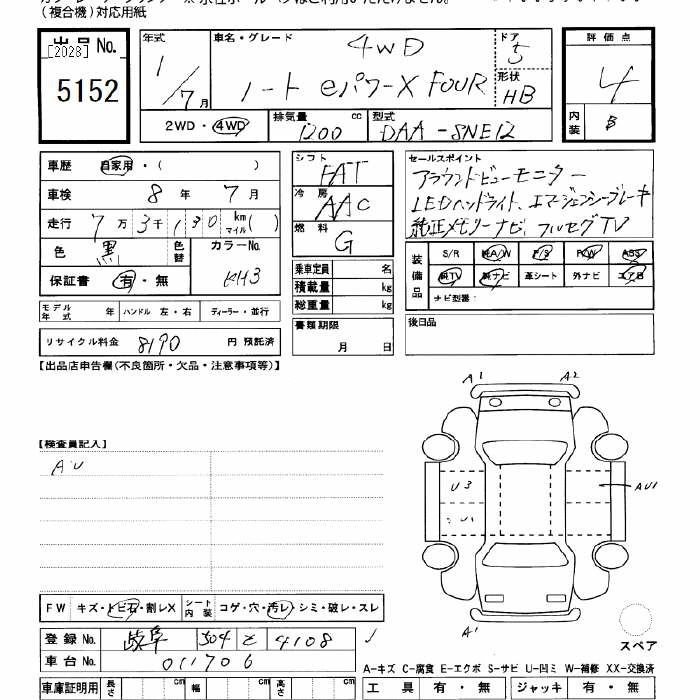 (複合機)対応用紙
出品No.
[2023]
5152
年式 1/7月
車名・グレード 4WD
ノート eパワーX FOUR
ドア 5
形状 HB
評価点 4
内装 B
2WD・4WD
排気量 1200 cc
型式 DAA-SNE12
車歴 自家用・( )
車検 8年 7月
走行 7万3千130 km マイル( )
色 黒 色替 カラーNo. KH3
保証書 有・無
シフト FAT
冷房 AAC
燃料 G
乗車定員 名
積載量 kg
総重量 kg
書類期限 月 日
セールスポイント
アラウンドビューモニター
LEDヘッドライト、エマージェンシーブレーキ
純正メモリーナビ、フルセグTV
装備品 S/R 純A/W P/S P/W ABS
純TV 純ナビ 革シート 外ナビ エアB
ナビ型番:
後日品
モデル年式 年 ハンドル 左・右 ディーラー・並行
リサイクル料金 8190 円 預託済
【出品店申告欄(不良箇所・欠品・注意事項等)】
【検査員記入】
AU
A1 A2
U3 AU1
A1
FW キズ・トビ石・割レX シート内装 コゲ・穴・汚レ・シミ・破レ・スレ
登録No. 岐阜 504 と 4108
車台No. 011706
スペア
A-キズ C-腐食 E-エクボ S-サビ U-凹ミ W-補修 XX-交換済
車庫証明用 長さ cm 幅 cm 高さ cm
工具 有・無 ジャッキ 有・無